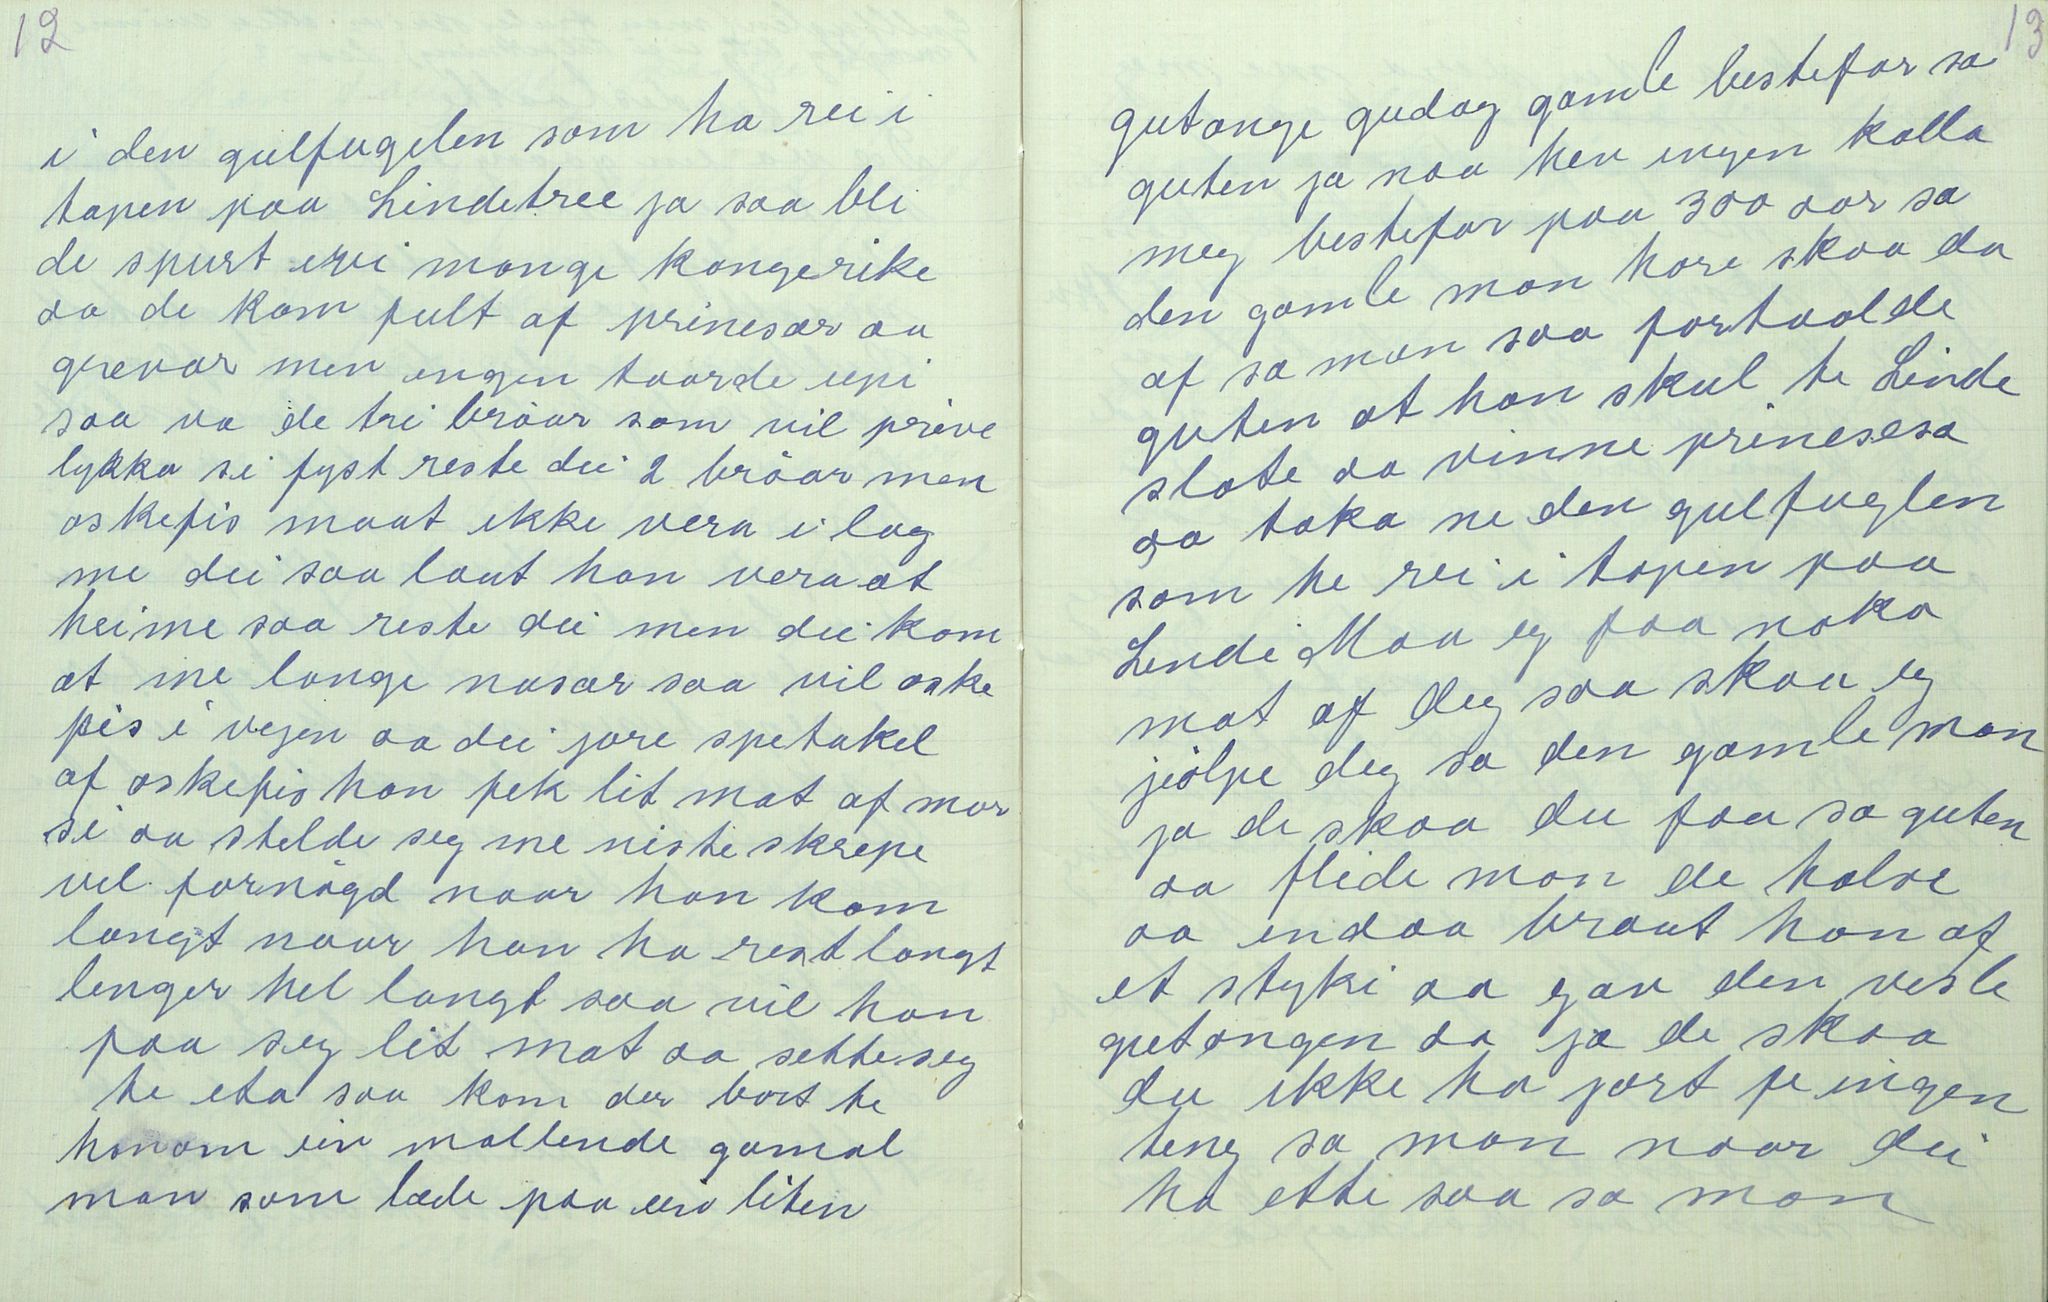 12
i den gulfugelen som ha rei i
tapen paa Lindetree ja saa bli
de spurt ivi mange kongerike
aa de kom fult af prinesar aa
grevar men ingen taarde upi
saa va de tri bröar som vil prive
lykka si fyst reste dei 2 bröar men
askefis maat ikke vera i lag
me dei saa laut han vera at
heime saa reste dei men dei kom
at me lange nasar saa vil aske
fis i vejen aa dei jore spetakel
af askefis han fek lit mat af mor
si aa stelde seg me niste skrepe
vel fornögd naar han kom
langt naar han ha rest langt
lenger hel langt saa vil han
faa seg lit mat aa sette seg
te eta saa kom der bort te
honom ein mallende gamal
man som læde paa ein liten
13
gutange gudag gamle bestefar sa
guten ja naa hev ingen kalla
meg bestefar paa 300 aar sa
den gamle man hare skaa du
af sa man saa fortaalde
guten at han skul te Linde
slote aa vinne prinesesa
aa taka ne den gulfuglen
som he rei i tapen paa
Linde Maa eg faa noka
mat af deg saa skaa eg
jiölpe deg sa den gamle man
ja de skaa du faa sa guten
aa flide man de halve
aa endaa braut han af
et styki aa gav den vesle
gutangen aa ja de skaa
du ikke ha jort fe ingen
teng sa man naar dei
ha etti saa sa man